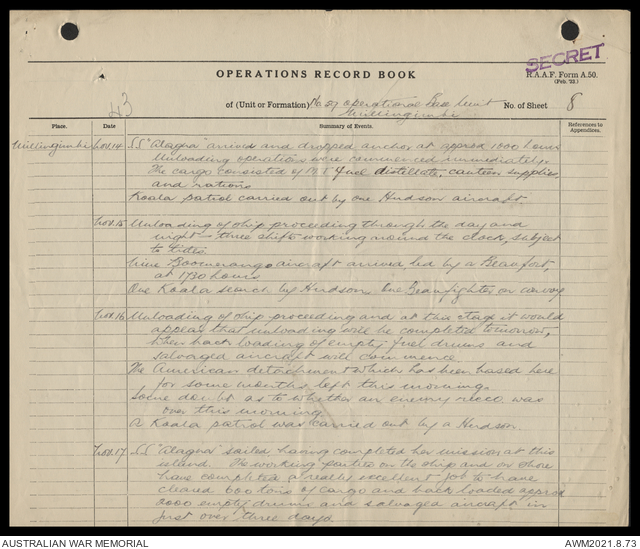 SECRET
OPERATIONS RECORD BOOK
R.A.A.F. Form A.50.
(Feb. '22.)
43
of (Unit or Formation) No 59 operational Base Unit
Millingimbi
No. of Sheet 8
Place. Date Summary of Events. References to Appendices.
Millingimbi Nov.14 SS "Alagna" arrived and dropped anchor at approx 1000 hours
Unloading operations were commenced immediately.
The cargo consisted of M.T. fuel distillate, canteen supplies
and rations
Koala patrol carried out by one Hudson aircraft.
Nov.15 Unloading of ship proceeding through the day and
night - three shifts working around the clock, subject
to tides.
Nine Boomerang aircraft arrived led by a Beaufort,
at 1730 hours
One Koala search by Hudson, One Beaufighter on convoy
Nov.16 Unloading of ship proceeding and at this stage it would
appear that unloading will be completed tomorrow,
then back loading of empty fuel drums and
salvaged aircraft will commence.
The American detachment which has been based here
for some months left this morning.
Some doubt as to whether an enemy recco was
over this morning
A Koala patrol was carried out by a Hudson.
Nov.17 SS "Alagna" sailed having completed her mission at this
island. The working parties on the ship and on shore
have completed a really excellent job to have
cleared 600 tons of cargo and back loaded approx
2000 empty drums and salvaged aircraft in
just over three days.
AUSTRALIAN WAR MEMORIAL
AWM2021.8.73